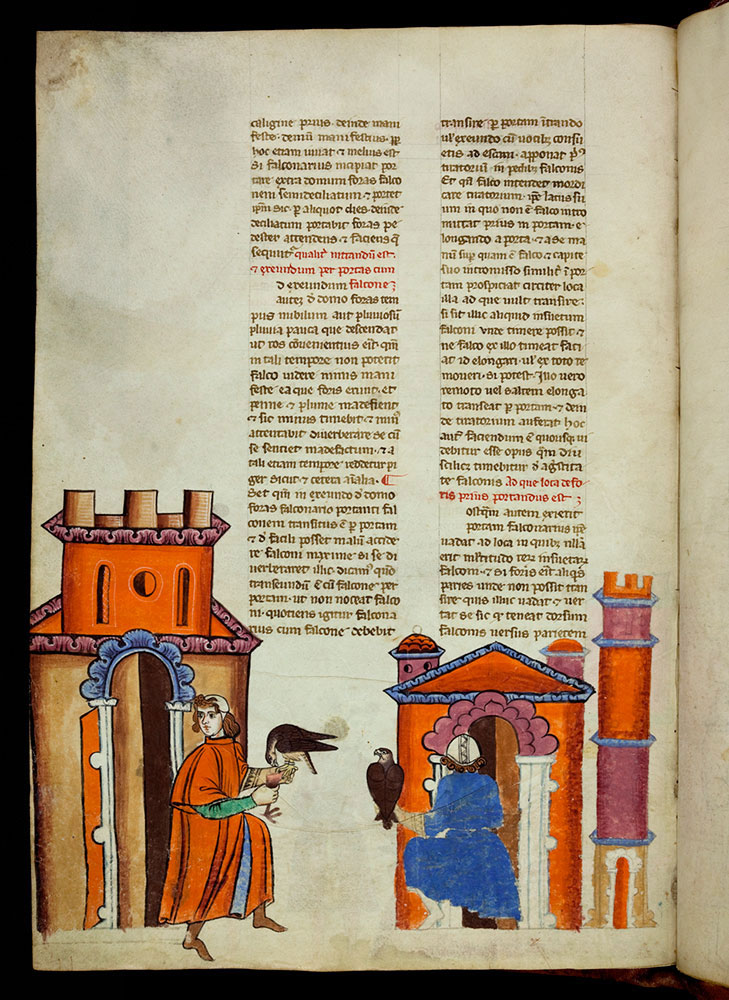 caligine prius. deinde mani
feste. demū manifestius. ꝑꝑ
hoc etiam iuuat ⁊ melius est
Si falconarius incipiat por
tare extra domum foras falco
nem semiciliatum ⁊ portet
ip̄m sic ꝑ aliquot dies. deinde
deciliatum portabit foras pe
dester attendens ⁊ faciens q̄
sequūt᷑ qualit᷑ intrandū est
⁊ exeundum per portas cum
exeundum falcone
autē d̄ domo foras tem
pus nubilum aut pluuiosū
pluuia pauca que descendat
ut ros cōuenientius est q̄m
in tali tempore non poterit
falco uidere nimis mani
feste ea que foris erunt. et
penne ⁊ plume madefient
⁊ sic minus timebit ⁊ min᷒
attentabit diuerberare se cū
se sentiet madefactum. ⁊ a
tali etiam tempore reddetur pi
ger sicut ⁊ cetera aīalia.
Set q̄m in exeundo d̄ domo
foras falconario portanti fal
conem transitus ē ꝑ portam
⁊ d̄ facili posset malū accide
re falconi maxime si se di
uerberaret illuc. dicam᷒ quō
transeundū ē cū falcone per
portam. ut non noceat falco
ni. quotiens igitur falcona
rius cum falcone debebit
transire ꝑ portam ītrando
uł exeundo cū uocib᷒ consu
etis ad escam. apponat
tiratoriū in pedib᷒ falconis
Et q̄n falco intendet mordi
care tiratorium. ip̄e latus su
um in quo non ē falco intro
mittat prius in portam. e
longando a porta. ⁊ a se ma
nū suꝑ quam ē falco. ⁊ capite
suo intromisso similit᷑ ī por
tam prospiciat circiter loca
illa ad que uult transire.
si sit illic aliquid insuetum
falconi unde timere possit ⁊
ne falco ex illo timeat faci
at id elongari. uł ex toto re
moueri. si potest. Illo uero
remoto uel saltem elonga
to transeat ꝑ portam. ⁊ dein
de tiratorium auferat hoc
aut᷑ faciendum ē quousq̄ ui
debitur esse opus q̄m diu
scilicz timebitur d̄ agresti
tate falconis Ad que loca defo
ris prius portandus est
Ostq̄m autem exierit
portam falconarius
uadat ad loca in quib᷒
erit insuetar̄
falconi. ⁊ si foris est aliq̄s
paries unde non possit tran
sire quis illuc uadat ⁊ uer
tat se sic q̄ teneat dorsum
falconis uersus parietem